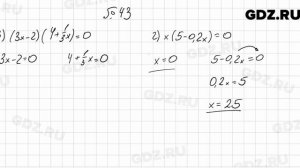 № 43
GDZ.RU
) (3x-2)(4+1/3x)=0
3x-2=0 4+1/3x=0
2) x(5-0,2x)=0
x=0 5-0,2x=0
0,2x=5
x=25